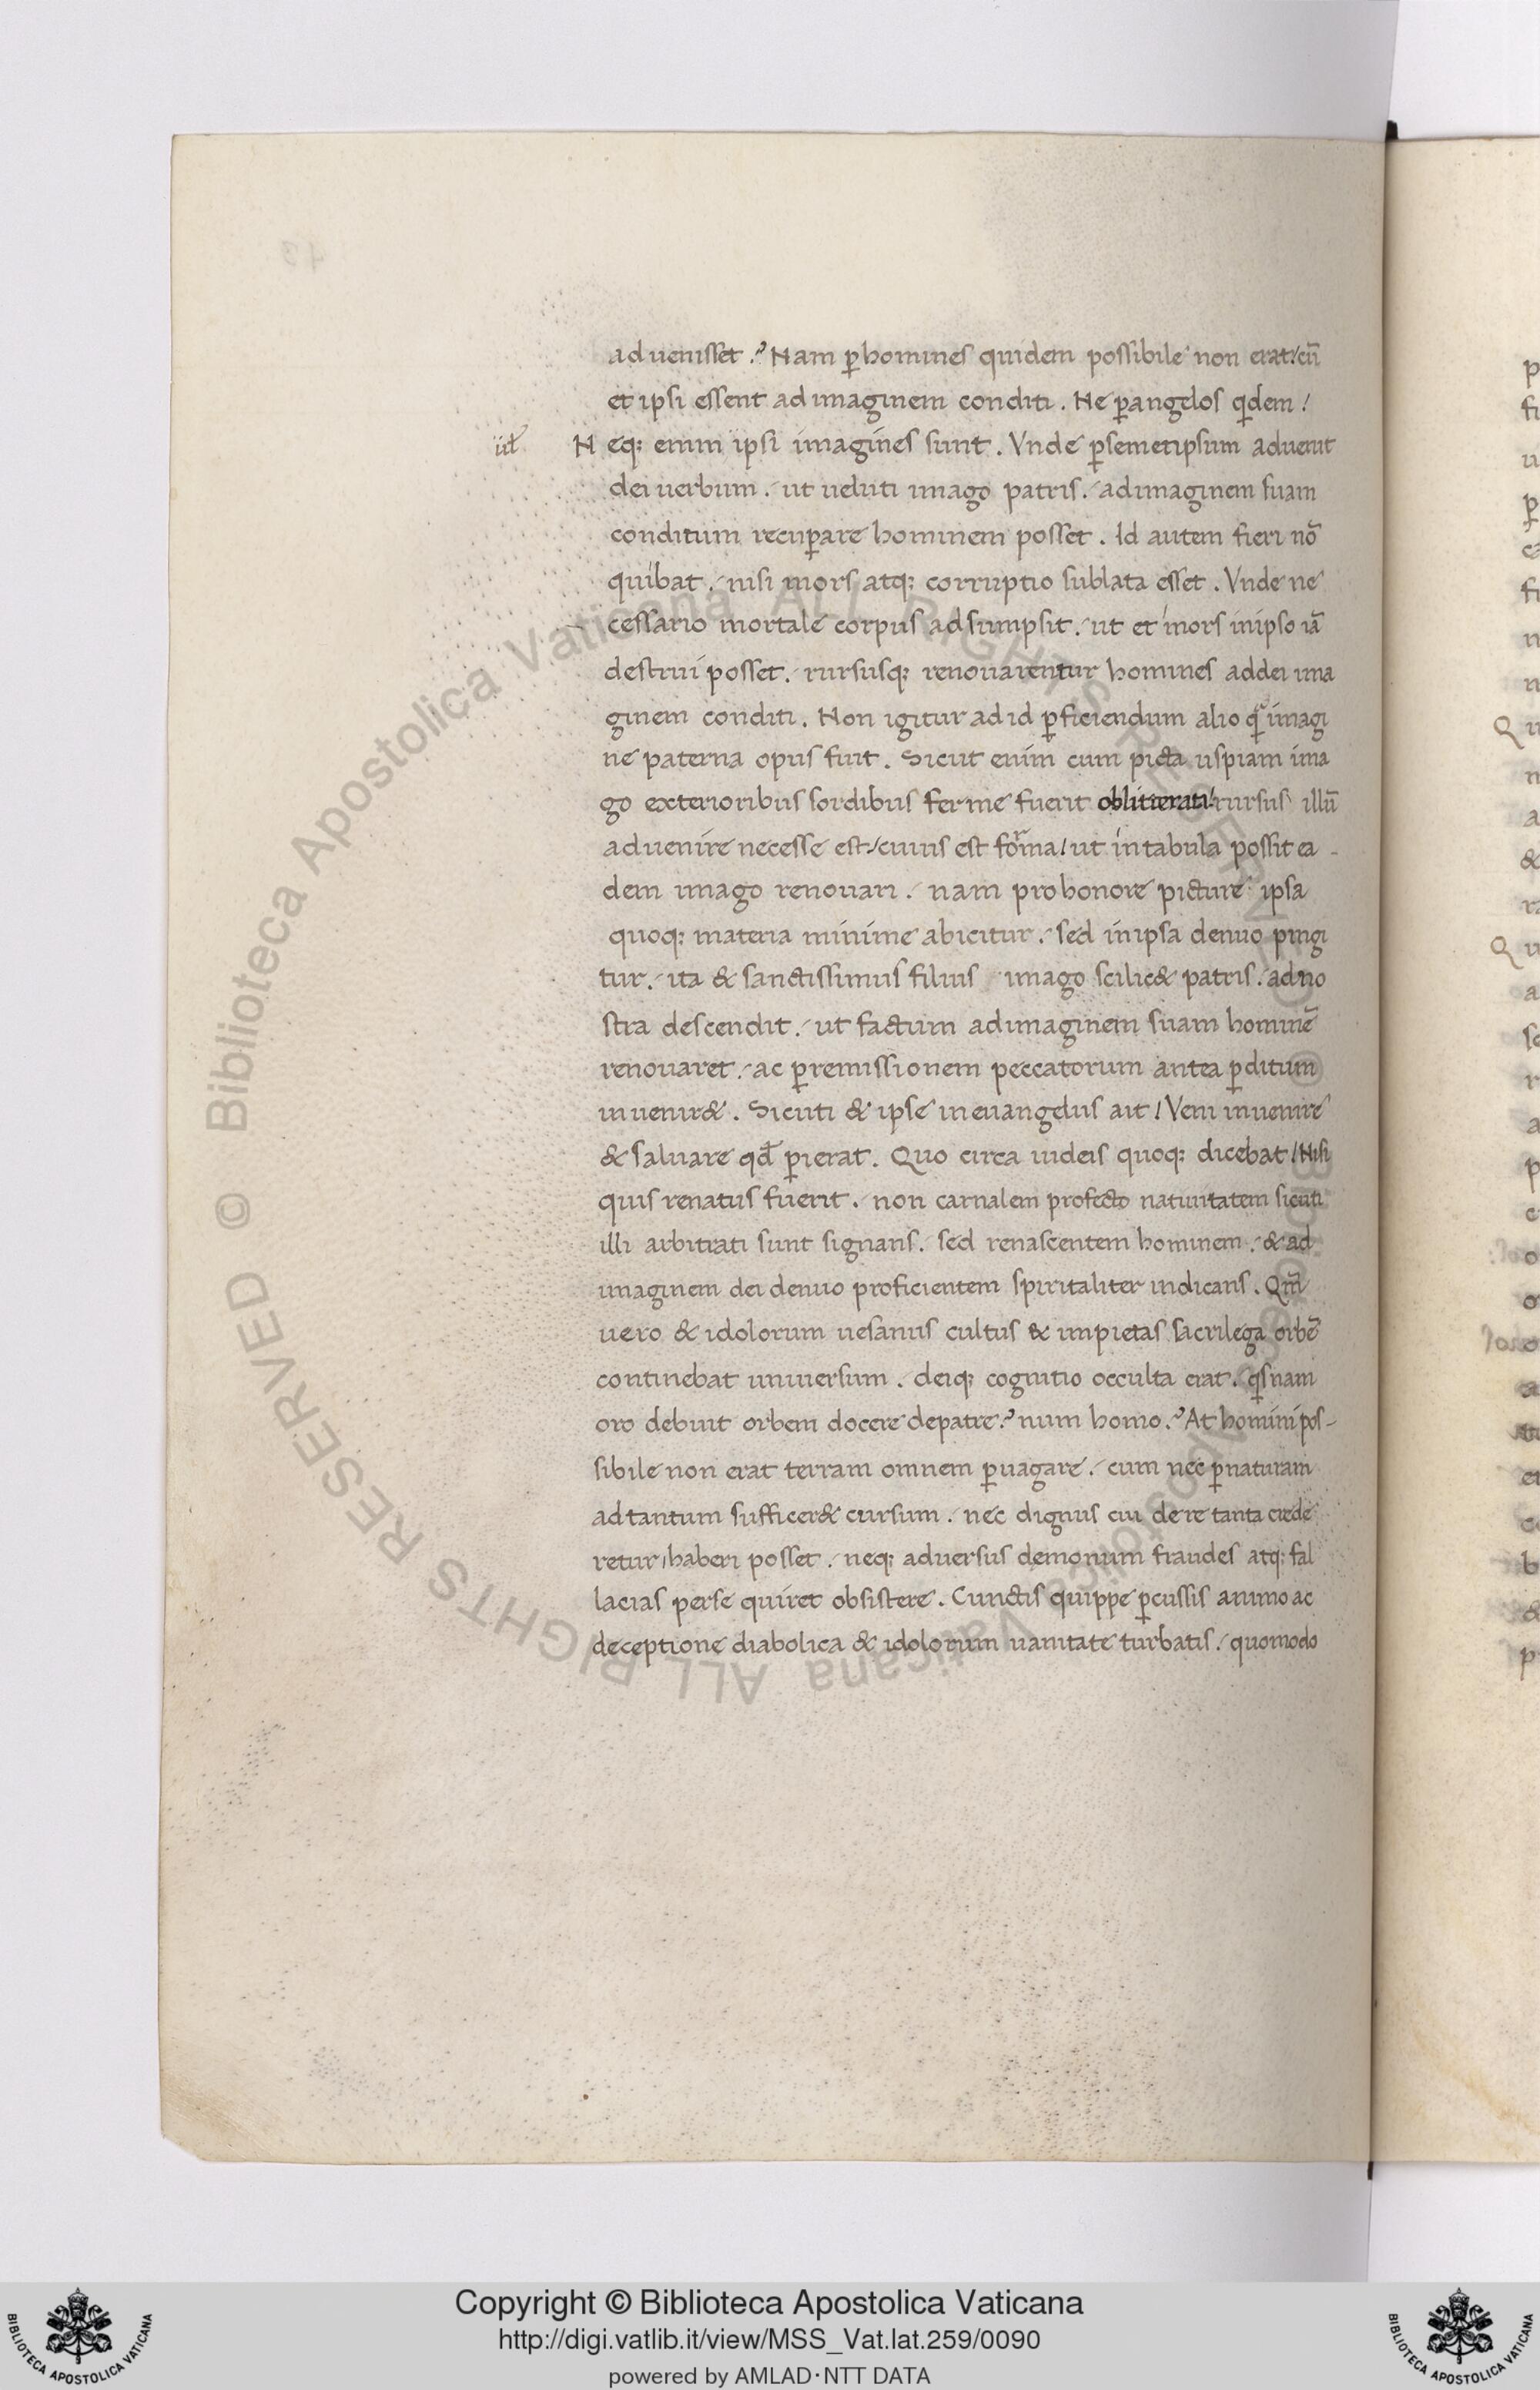 aduenisset .ʾ Nam ꝑ homines quidem possibile non erat / cū
et ipsi essent ad imaginem conditi . Ne ꝑ angelos qͥdem !
Neqꝫ enim ipsi imagines sunt . Vnde ꝑ semetipsum aduenit
dei uerbum . ut ueluti imago patris . ad imaginem suam
conditum recuꝑare hominem posset . Id autem fieri nō
quibat . nisi mors atqꝫ corruptio sublata esset . Vnde ne
cessario mortale corpus adsumpsit . ut et mors in ipso iā
destrui posset . rursusqꝫ renouarentur homines ad dei ima
ginem conditi . Non igitur ad id ꝑficiendum alio qͣ imagi
ne paterna opus fuit . Sicut enim cum picta uspiam ima
go exterioribus sordibus ferme fuerit rursus illū
aduenire necesse est / cuius est forma / ut in tabula possit ea -
dem imago renouari . nam pro honore picture ipsa
quoqꝫ materia minime abicitur . sed in ipsa denuo pingi
tur . ita & sanctissimus filius imago scilic& patris . ad no
stra descendit . ut factum ad imaginem suam hominē
renouaret . ac ꝑ remissionem peccatorum antea ꝑditum
inuenir& . Sicuti & ipse in euangeliis ait / Veni inuenire
& saluare qđ ꝑierat . Quo circa iudeis quoqꝫ dicebat / Nisi
quis renatus fuerit . non carnalem profecto natiuitatem sicuti
illi arbitrati sunt signans . sed renascentem hominem . & ad
imaginem dei denuo proficientem spiritaliter indicans . Qm̄
uero & idolorum uesanus cultus & impietas sacrilega orbē
continebat uniuersum . deiqꝫ cognitio occulta erat . qͥsnam
oro debuit orbem docere de patre .ʾ num homo .ʾ At homini pos-
sibile non erat terram omnem ꝑuagare . cum nec ꝑ naturam
ad tantum sufficer& cursum . nec dignus cui de re tanta crede
retur / haberi posset . neqꝫ aduersus demonum fraudes atqꝫ fal
lacias per se quiret obsistere . Cunctis quippe ꝑcussis animo ac
deceptione diabolica & idolorum uanitate turbatis . quomodo
Copyright © Biblioteca Apostolica Vaticana
http://digi.vatlib.it/view/MSS_Vat.lat.259/0090
powered by AMLAD·NTT DATA